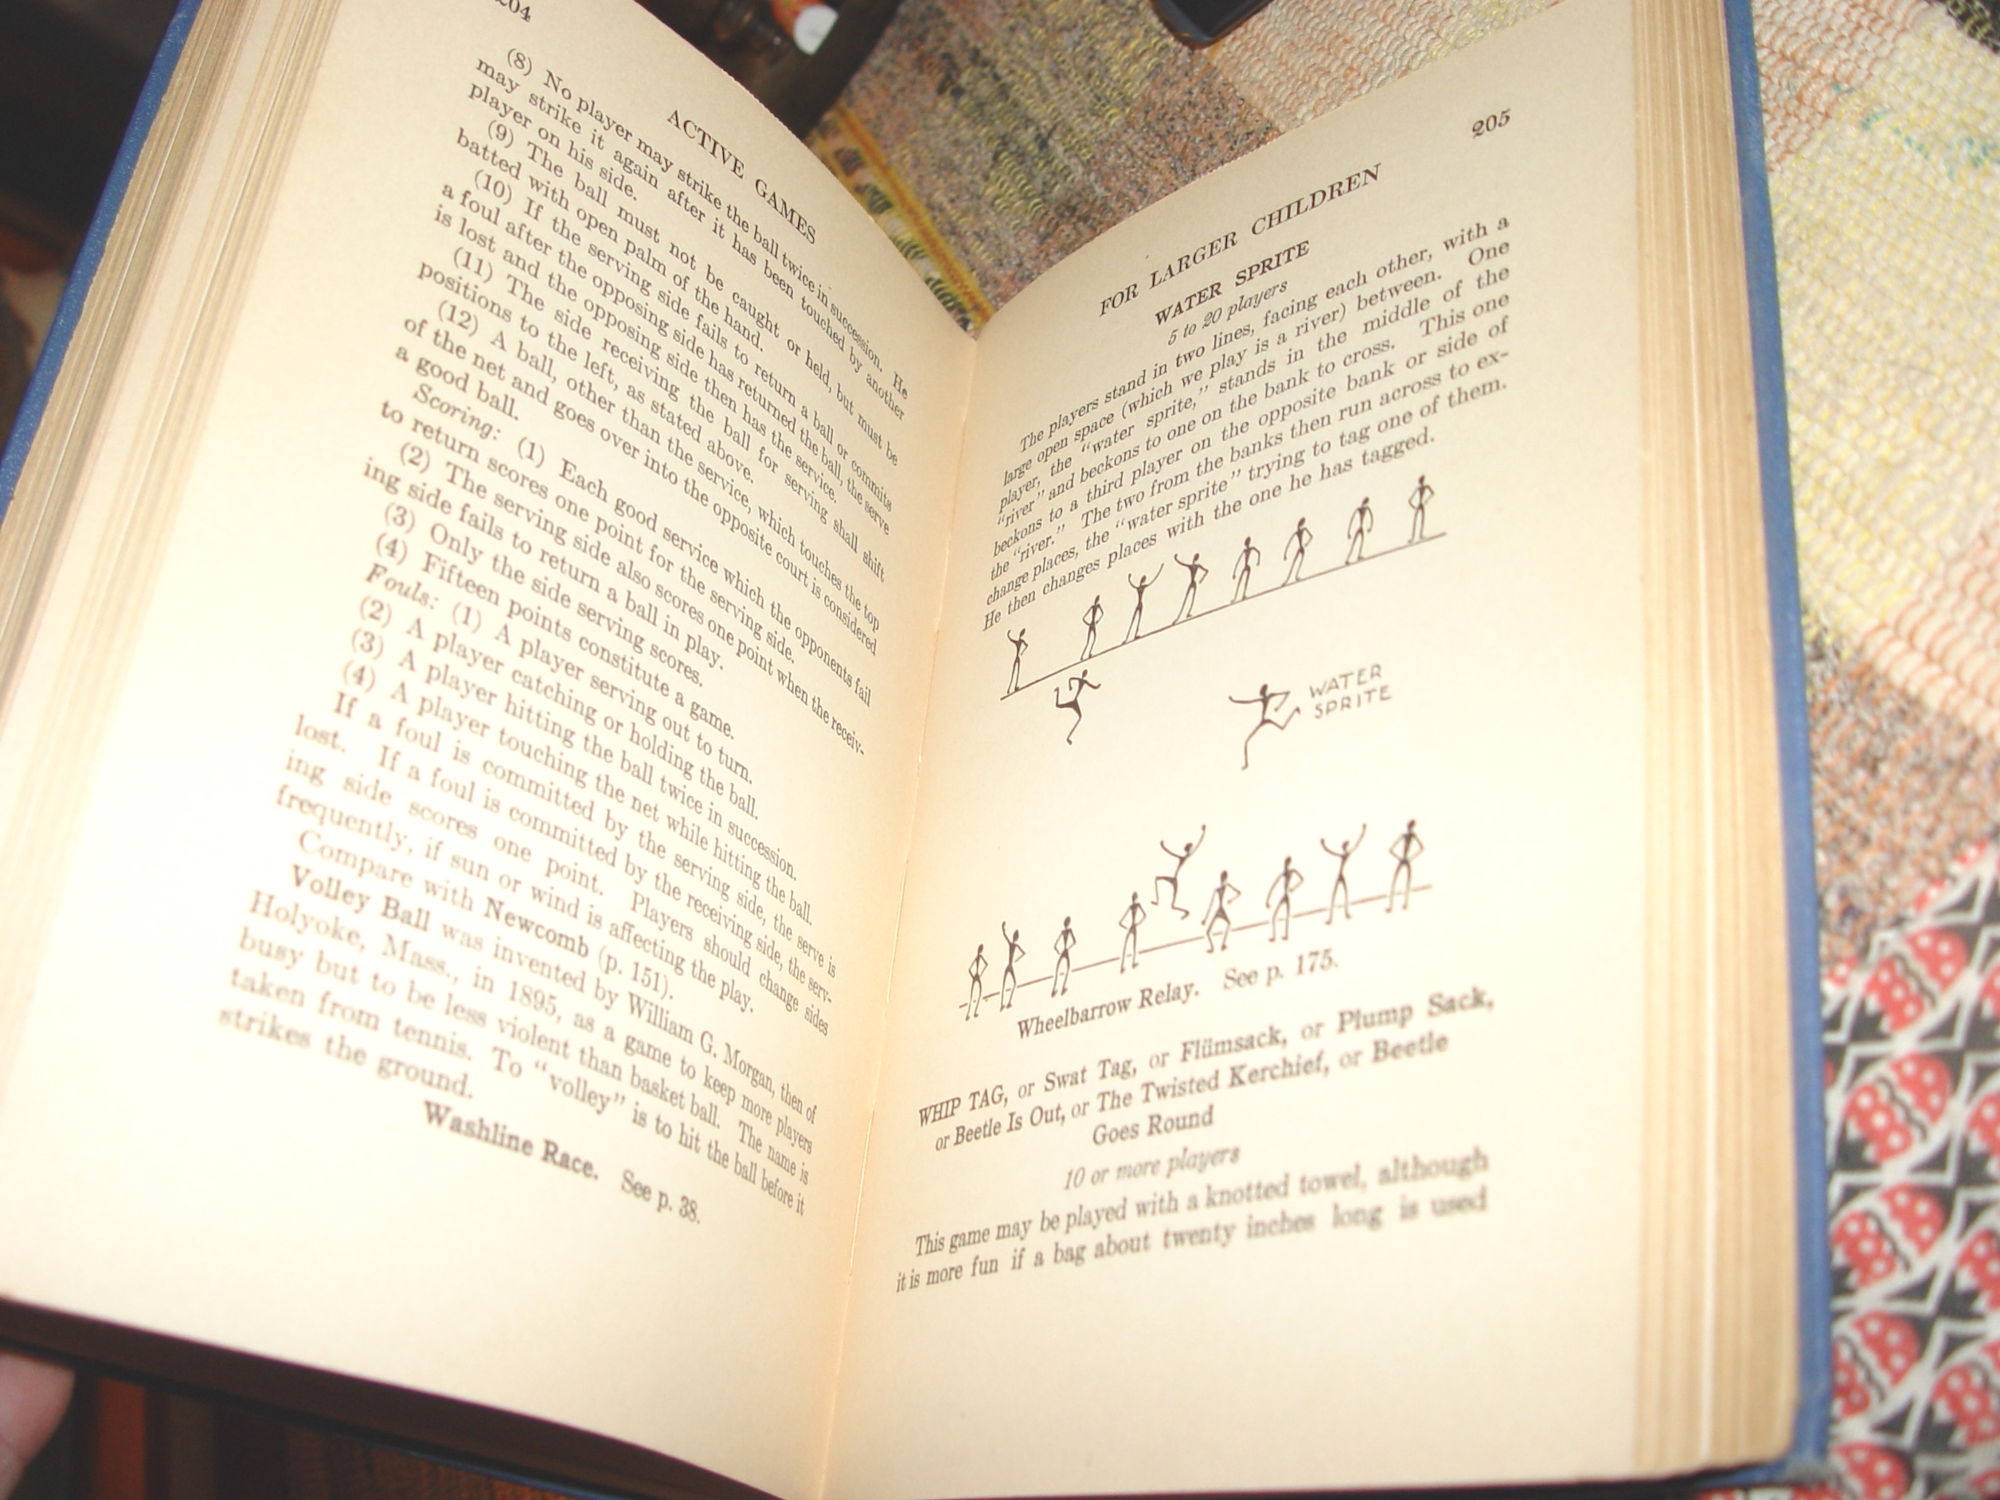 204
ACTIVE GAMES
(8) No player may strike the ball twice in succession. He
may strike it again after it has been touched by another
player on his side.
(9) The ball must not be caught or held, but must be
batted with open palm of the hand.
(10) If the serving side fails to return a ball or commits
a foul after the opposing side has returned the ball, the serve
is lost and the opposing side then has the service.
(11) The side receiving the ball for serving shall shift
positions to the left, as stated above.
(12) A ball, other than the service, which touches the top
of the net and goes over into the opposite court is considered
a good ball.
Scoring: (1) Each good service which the opponents fail
to return scores one point for the serving side.
(2) The serving side also scores one point when the receiv-
ing side fails to return a ball in play.
(3) Only the side serving scores.
(4) Fifteen points constitute a game.
Fouls: (1) A player serving out to turn.
(2) A player catching or holding the ball.
(3) A player hitting the ball twice in succession.
(4) A player touching the net while hitting the ball.
If a foul is committed by the serving side, the serve is
lost. If a foul is committed by the receiving side, the serv-
ing side scores one point. Players should change sides
frequently, if sun or wind is affecting the play.
Compare with Newcomb (p. 151).
Volley Ball was invented by William G. Morgan, then of
Holyoke, Mass., in 1895, as a game to keep more players
busy but to be less violent than basket ball. The name is
taken from tennis. To "volley" is to hit the ball before it
strikes the ground.
Washline Race. See p. 38.
205
FOR LARGER CHILDREN
WATER SPRITE
5 to 20 players
The players stand in two lines, facing each other, with a
large open space (which we play is a river) between. One
player, the "water sprite," stands in the middle of the
"river" and beckons to one on the bank to cross. This one
beckons to a third player on the opposite bank or side of
the "river." The two from the banks then run across to ex-
change places, the "water sprite" trying to tag one of them.
He then changes places with the one he has tagged.
WATER
SPRITE
Wheelbarrow Relay. See p. 175.
WHIP TAG, or Swat Tag, or Flümsack, or Plump Sack,
or Beetle Is Out, or The Twisted Kerchief, or Beetle
Goes Round
10 or more players
This game may be played with a knotted towel, although
it is more fun if a bag about twenty inches long is used